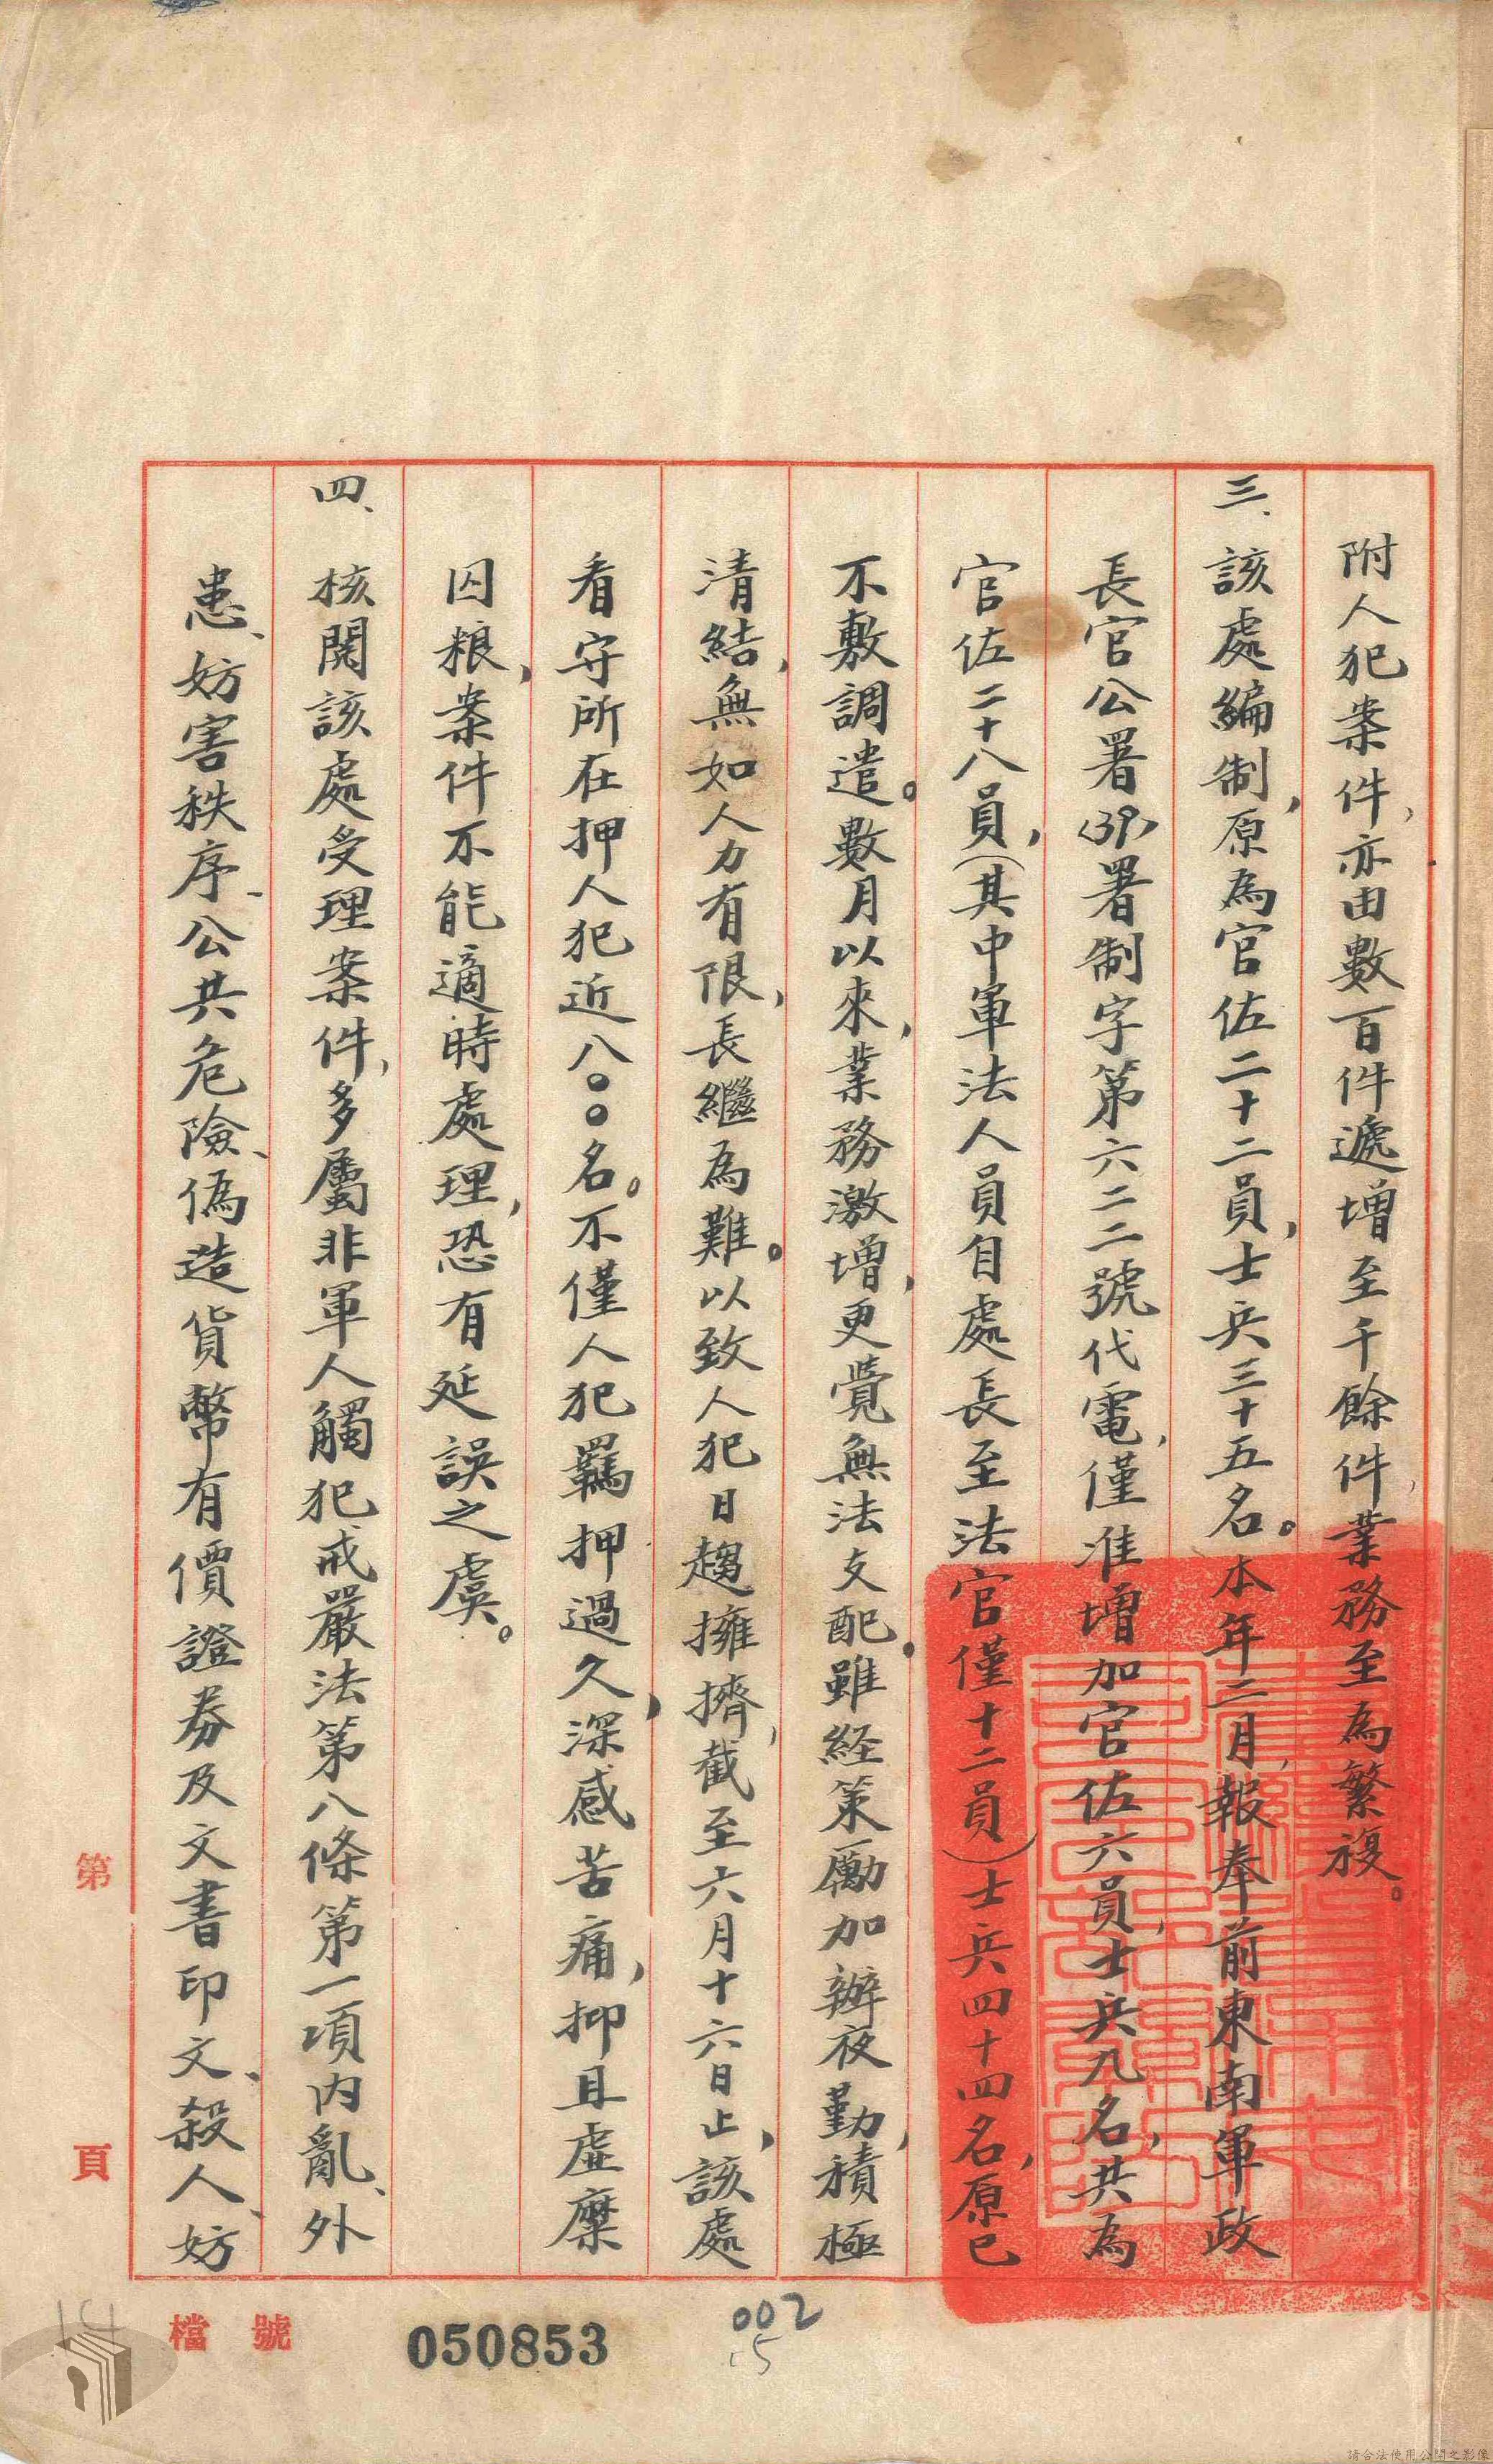 附人犯案件,亦由數百件遞增至千餘件,業務至為繁複。
三、該處編制,原為官佐二十二員,士兵三十五名。本年二月,報奉前東南軍政
長官公署(39)署制字第六二二號代電,僅准增加官佐六員,士兵九名,共為
官佐二十八員,(其中軍法人員自處長至法官僅十二員)士兵四十四名,原已
不敷調遣。數月以來,業務激增,更覺無法支配。雖經策勵加辦夜勤,積極
清結,無如人力有限,長繼為難。以致人犯日趨擁擠,截至六月十六日止,該處
看守所在押人犯近八〇〇名。不僅人犯羈押過久,深感苦痛,抑且虛糜
囚粮,案件不能適時處理,恐有延誤之虞。
四、核閱該處受理案件,多屬非軍人觸犯戒嚴法第八條第一項內亂、外
患、妨害秩序、公共危險、偽造貨幣有價證券及文書印文、殺人、妨
第
頁
檔號
050853
002
15
14
請合法使用公開之影像